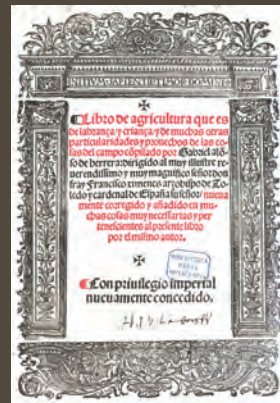 INITIVM SAPIENTIE TIMOR DOMINI
✠
¶Libro de agricultura que es
de labrança y criança/y de muchas otras
particularidades y prouechos de las co
sas del campo cõpilado por Gabriel alõ
so de herrera: dirigido al muy illustre re
uerendissimo y muy magnifico señor don
fray Francisco ximenez arçobispo de To
ledo y cardenal de España su señor: nueua
mente corregido y añadido en mu
chas cosas muy necessarias y per
tenescientes al presente libro
por el mismo autor.
✠
¶Con priuilegio imperial
nueuamente concedido.
BIBLIOTECA